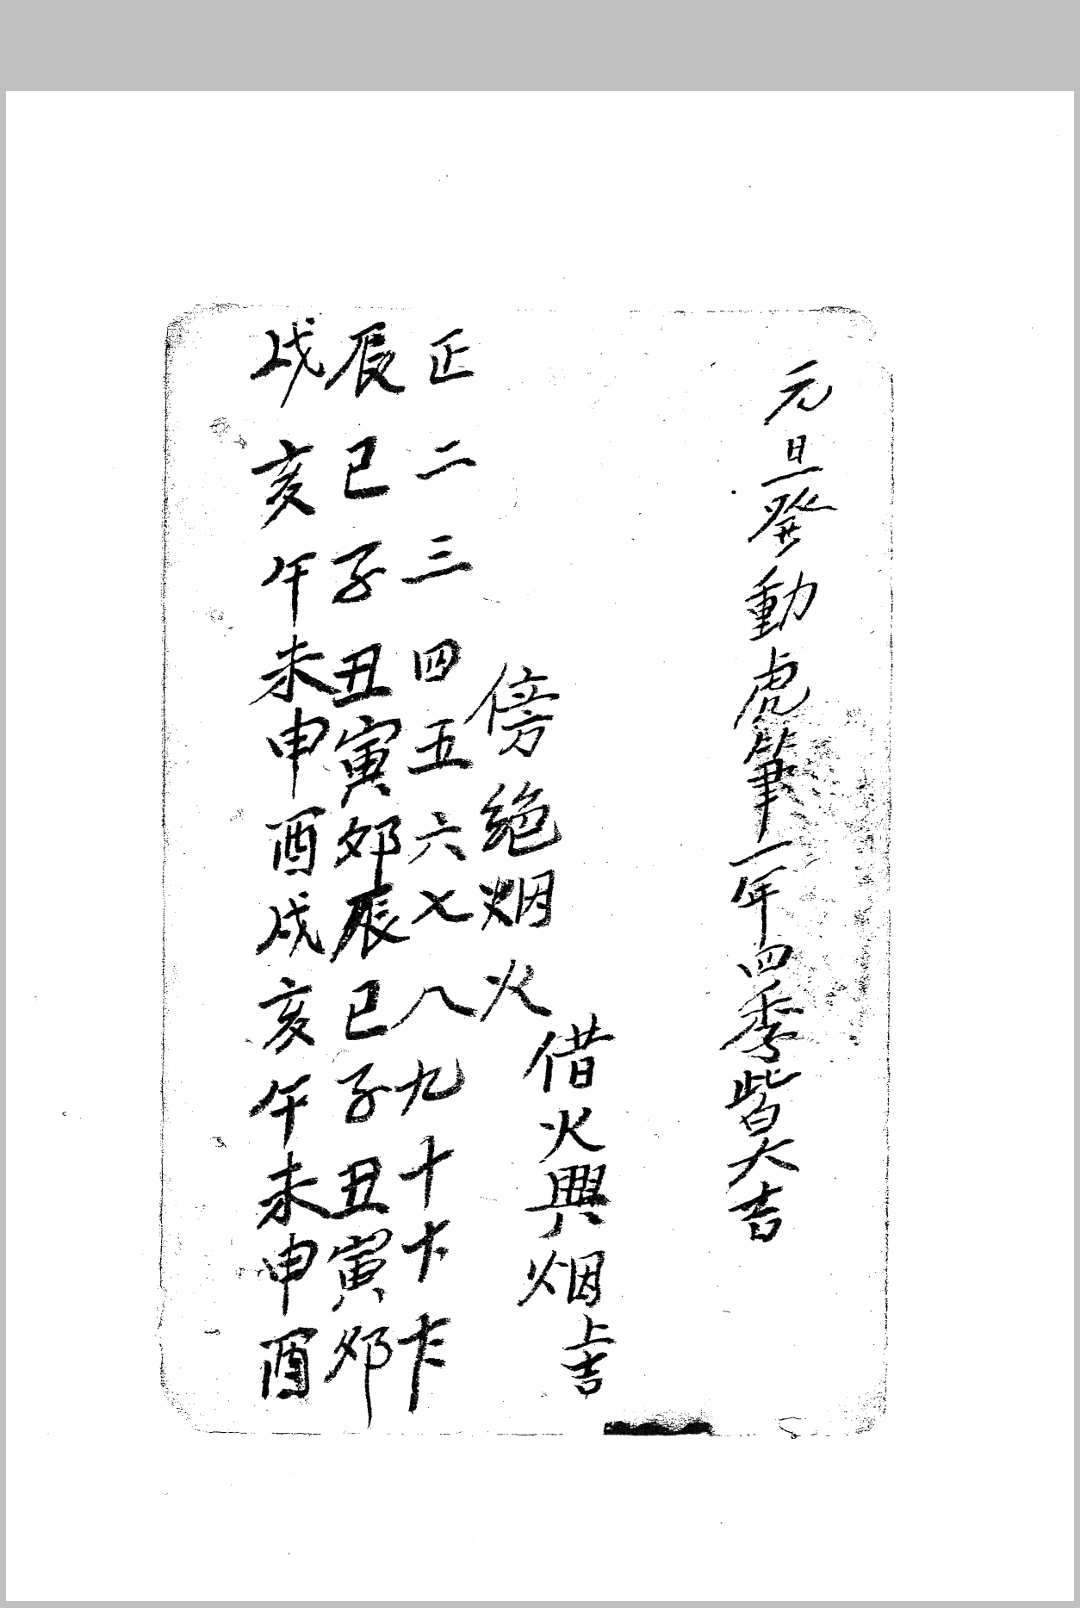 元旦發動虎筆一年四季皆大吉
借火興烟上吉
傍絕烟火
正二三四五六七八九十十一十二
辰巳子丑寅卯辰巳子丑寅卯
戌亥午未申酉戌亥午未申酉